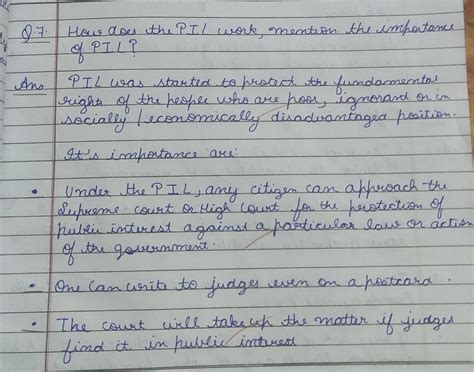 Q.7 How does the PIL work, mention the importance
of PIL?
Ans PIL was started to protect the fundamental
rights of the people who are poor, ignorand or in
socially / economically disadvantaged position.
It's importance are:
• Under the PIL, any citizen can approach the
Supreme court or High Court for the protection of
public interest against a particular law or action
of the government
• One can write to judges even on a postcard.
• The court will take up the matter if judges
find it in public interest